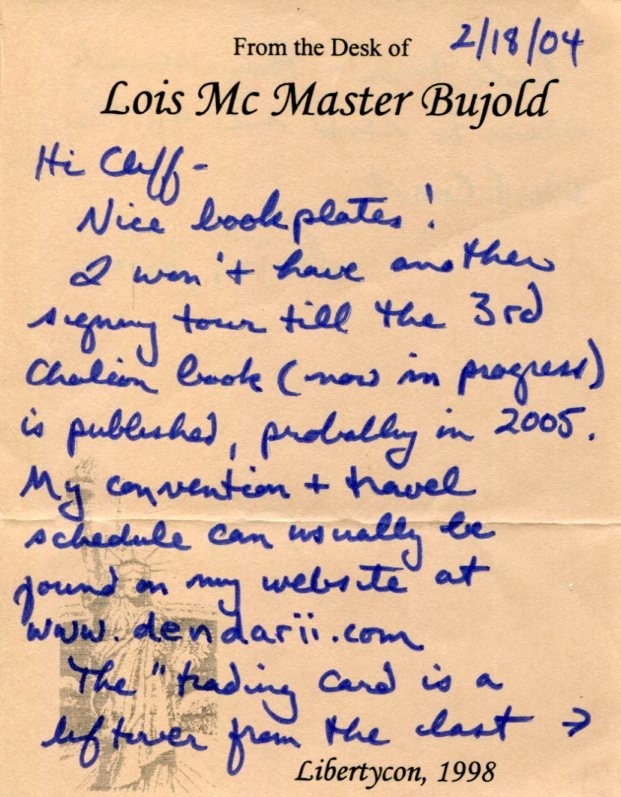 From the Desk of 2/18/04
Lois Mc Master Bujold
Hi Cliff -
Nice bookplates!
I won't have another
signing tour till the 3rd
Chalion book (now in progress)
is published, probably in 2005.
My convention + travel
schedule can usually be
found on my website at
www.dendarii.com
The "trading card is a
leftover from the last →
Libertycon, 1998